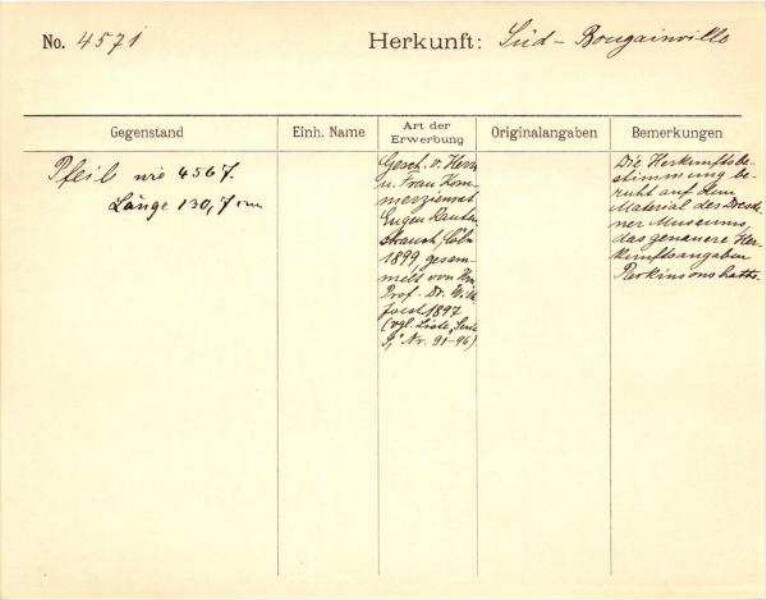 No. 4571 Herkunft: Süd-Bougainville
Gegenstand Einh. Name Art der Erwerbung Originalangaben Bemerkungen
Pfeil wie 4567.
Länge 130,7 cm
Gesch. v. Herrn
u. Frau Kom-
merzienrat
Eugen Rauten
strauch, Cöln
1899 gesam-
melt von Hrn
Prof. Dr. Wilh
Joest 1897
(vgl. Liste "Serie
Nr. 91-96)
Die Herkunftsbe-
stimmung be-
ruht auf dem
Material des Dresde-
ner Museums,
das genauere Her-
kunftsangaben
Parkinsons hatte.